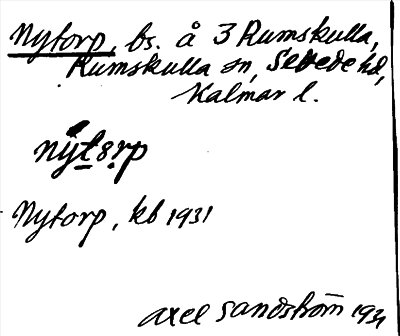 Nytorp, bs. å 3 Rumskulla,
Rumskulla sn, Sevede hd,
Kalmar l.
nýt8rp
Nytorp, kb 1931
Axel Sandström 1931